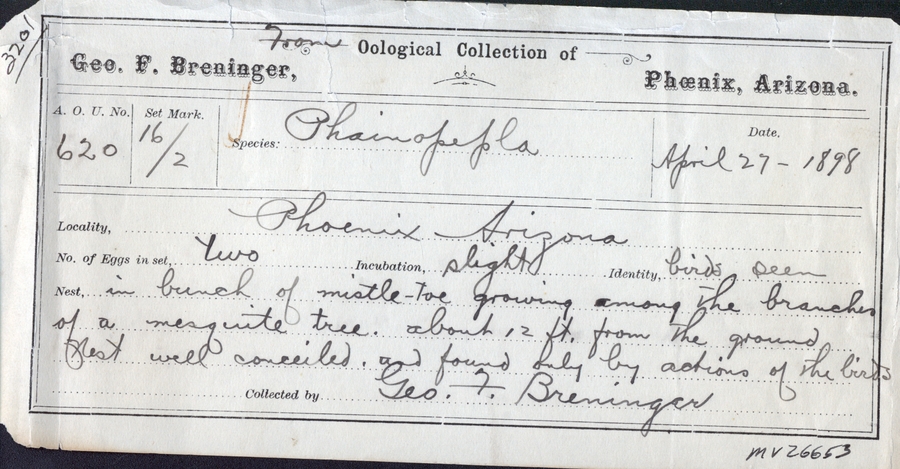 3201
From Oological Collection of
Geo. F. Breninger, Phœnix, Arizona.
A. O. U. No. Set Mark. Date.
620 16/2 Species: Phainopepla April 27 - 1898
Locality, Phoenix Arizona
No. of Eggs in set, two Incubation, slight Identity, birds seen
Nest, in bunch of mistle-toe growing among the branches
of a mesquite tree. about 12 ft. from the ground
Nest well conceiled. and found only by actions of the birds
Collected by Geo. F. Breninger
MV26653